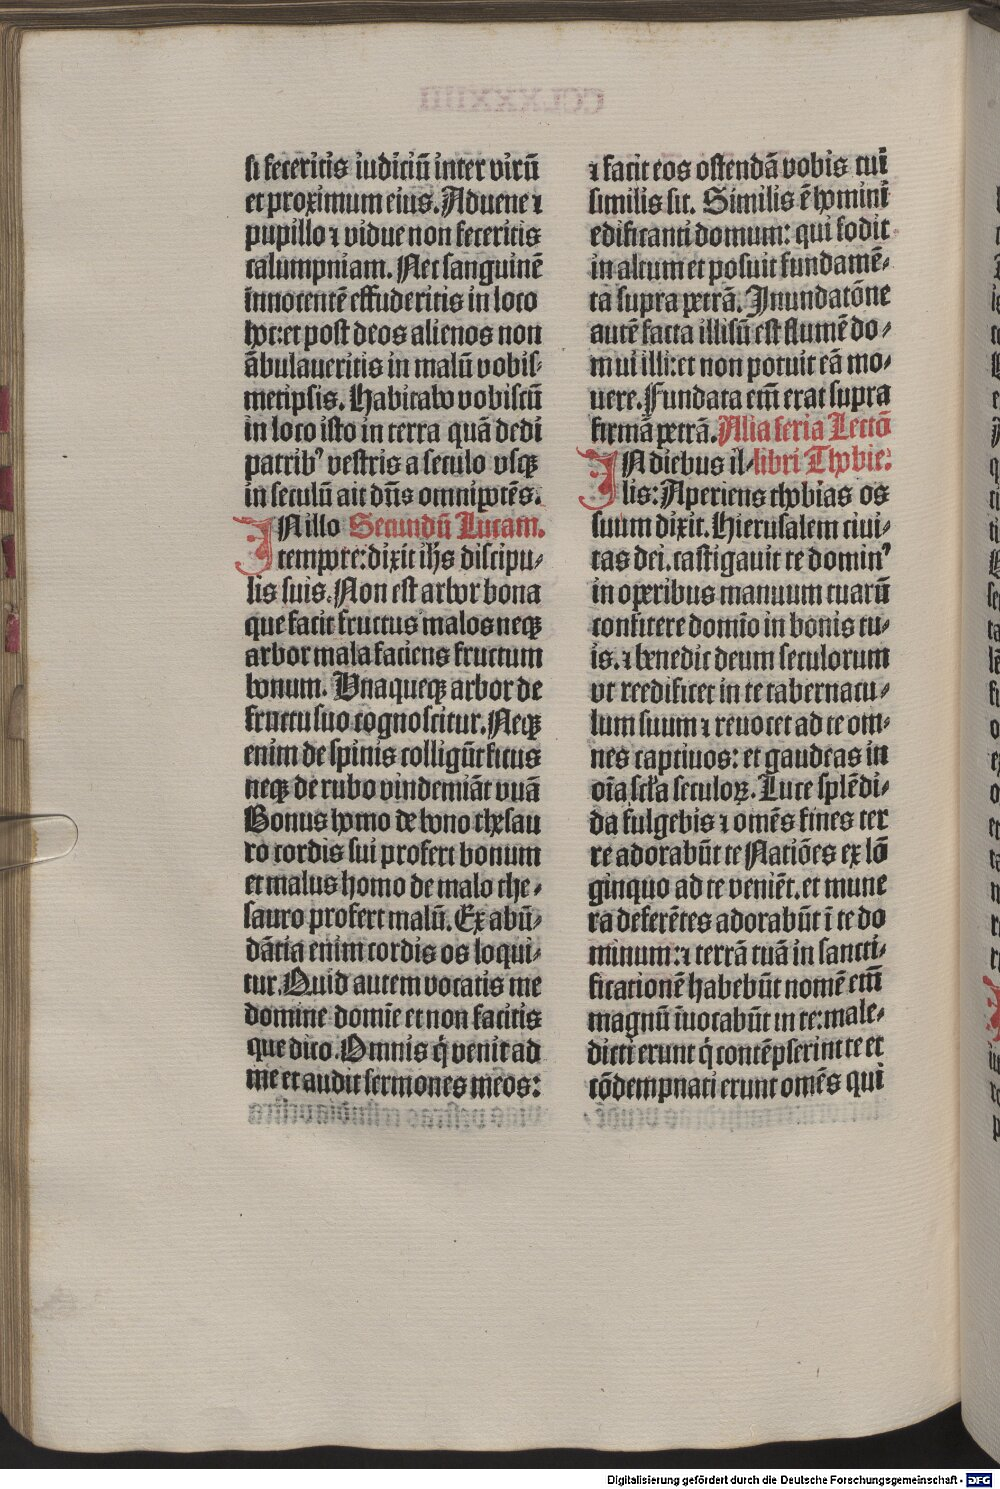 si feceritis iudiciū inter virū
et proximum eius. Aduene ⁊
pupillo ⁊ vidue non feceritis
calumpniam. Nec sanguinē
innocentē effuderitis in loco
hoc: et post deos alienos non
ābulaueritis in malū vobis-
metipsis. Habitabo vobiscū
in loco isto in terra quā dedi
patribꝰ vestris a seculo vsqꝫ
in seculū ait dn̄s omnipotēs.
IN illo Secundū Lucam.
tempore: dixit ih̄s discipu-
lis suis. Non est arbor bona
que facit fructus malos neqꝫ
arbor mala faciens fructum
bonum. Vnaqueqꝫ arbor de
fructu suo cognoscitur. Neqꝫ
enim de spinis colligūt ficus
neqꝫ de rubo vindemiāt vuā
Bonus homo de bono thesau
ro cordis sui profert bonum
et malus homo de malo the-
sauro profert malū. Ex abū-
dātia enim cordis os loqui-
tur. Quid autem vocatis me
domine domīe et non facitis
que dico. Omnis q̄ venit ad
me et audit sermones meos:
⁊ facit eos ostendā vobis cui
similis sit. Similis ē homini
edificanti domum: qui fodit
in altum et posuit fundamē-
ta supra petrā. Inundatōne
autē facta illisū est flumē do-
mui illi: et non potuit eā mo-
uere. Fundata em̄ erat supra
firmā petrā. Alia feria Lectō
IN diebus il- libri Thobie.
lis: Aperiens thobias os
suum dixit. Hierusalem ciui-
tas dei. castigauit te dominꝰ
in operibus manuum tuarū
confitere domīo in bonis tu-
is. ⁊ benedic deum seculorum
vt reedificet in te tabernacu-
lum suum ⁊ reuocet ad te om-
nes captiuos: et gaudeas in
oīa scl̄a seculoꝝ. Luce splēdi-
da fulgebis ⁊ omēs fines ter
re adorabūt te Natiōes ex lō
ginquo ad te veniēt. et mune
ra deferētes adorabūt ī te do
minum: ⁊ terrā tuā in sancti-
ficationē habebūt nomē em̄
magnū īuocabūt in te: male-
dicti erunt q̄ contēpserint te et
cōdempnati erunt omēs qui
Digitalisierung gefördert durch die Deutsche Forschungsgemeinschaft - DFG